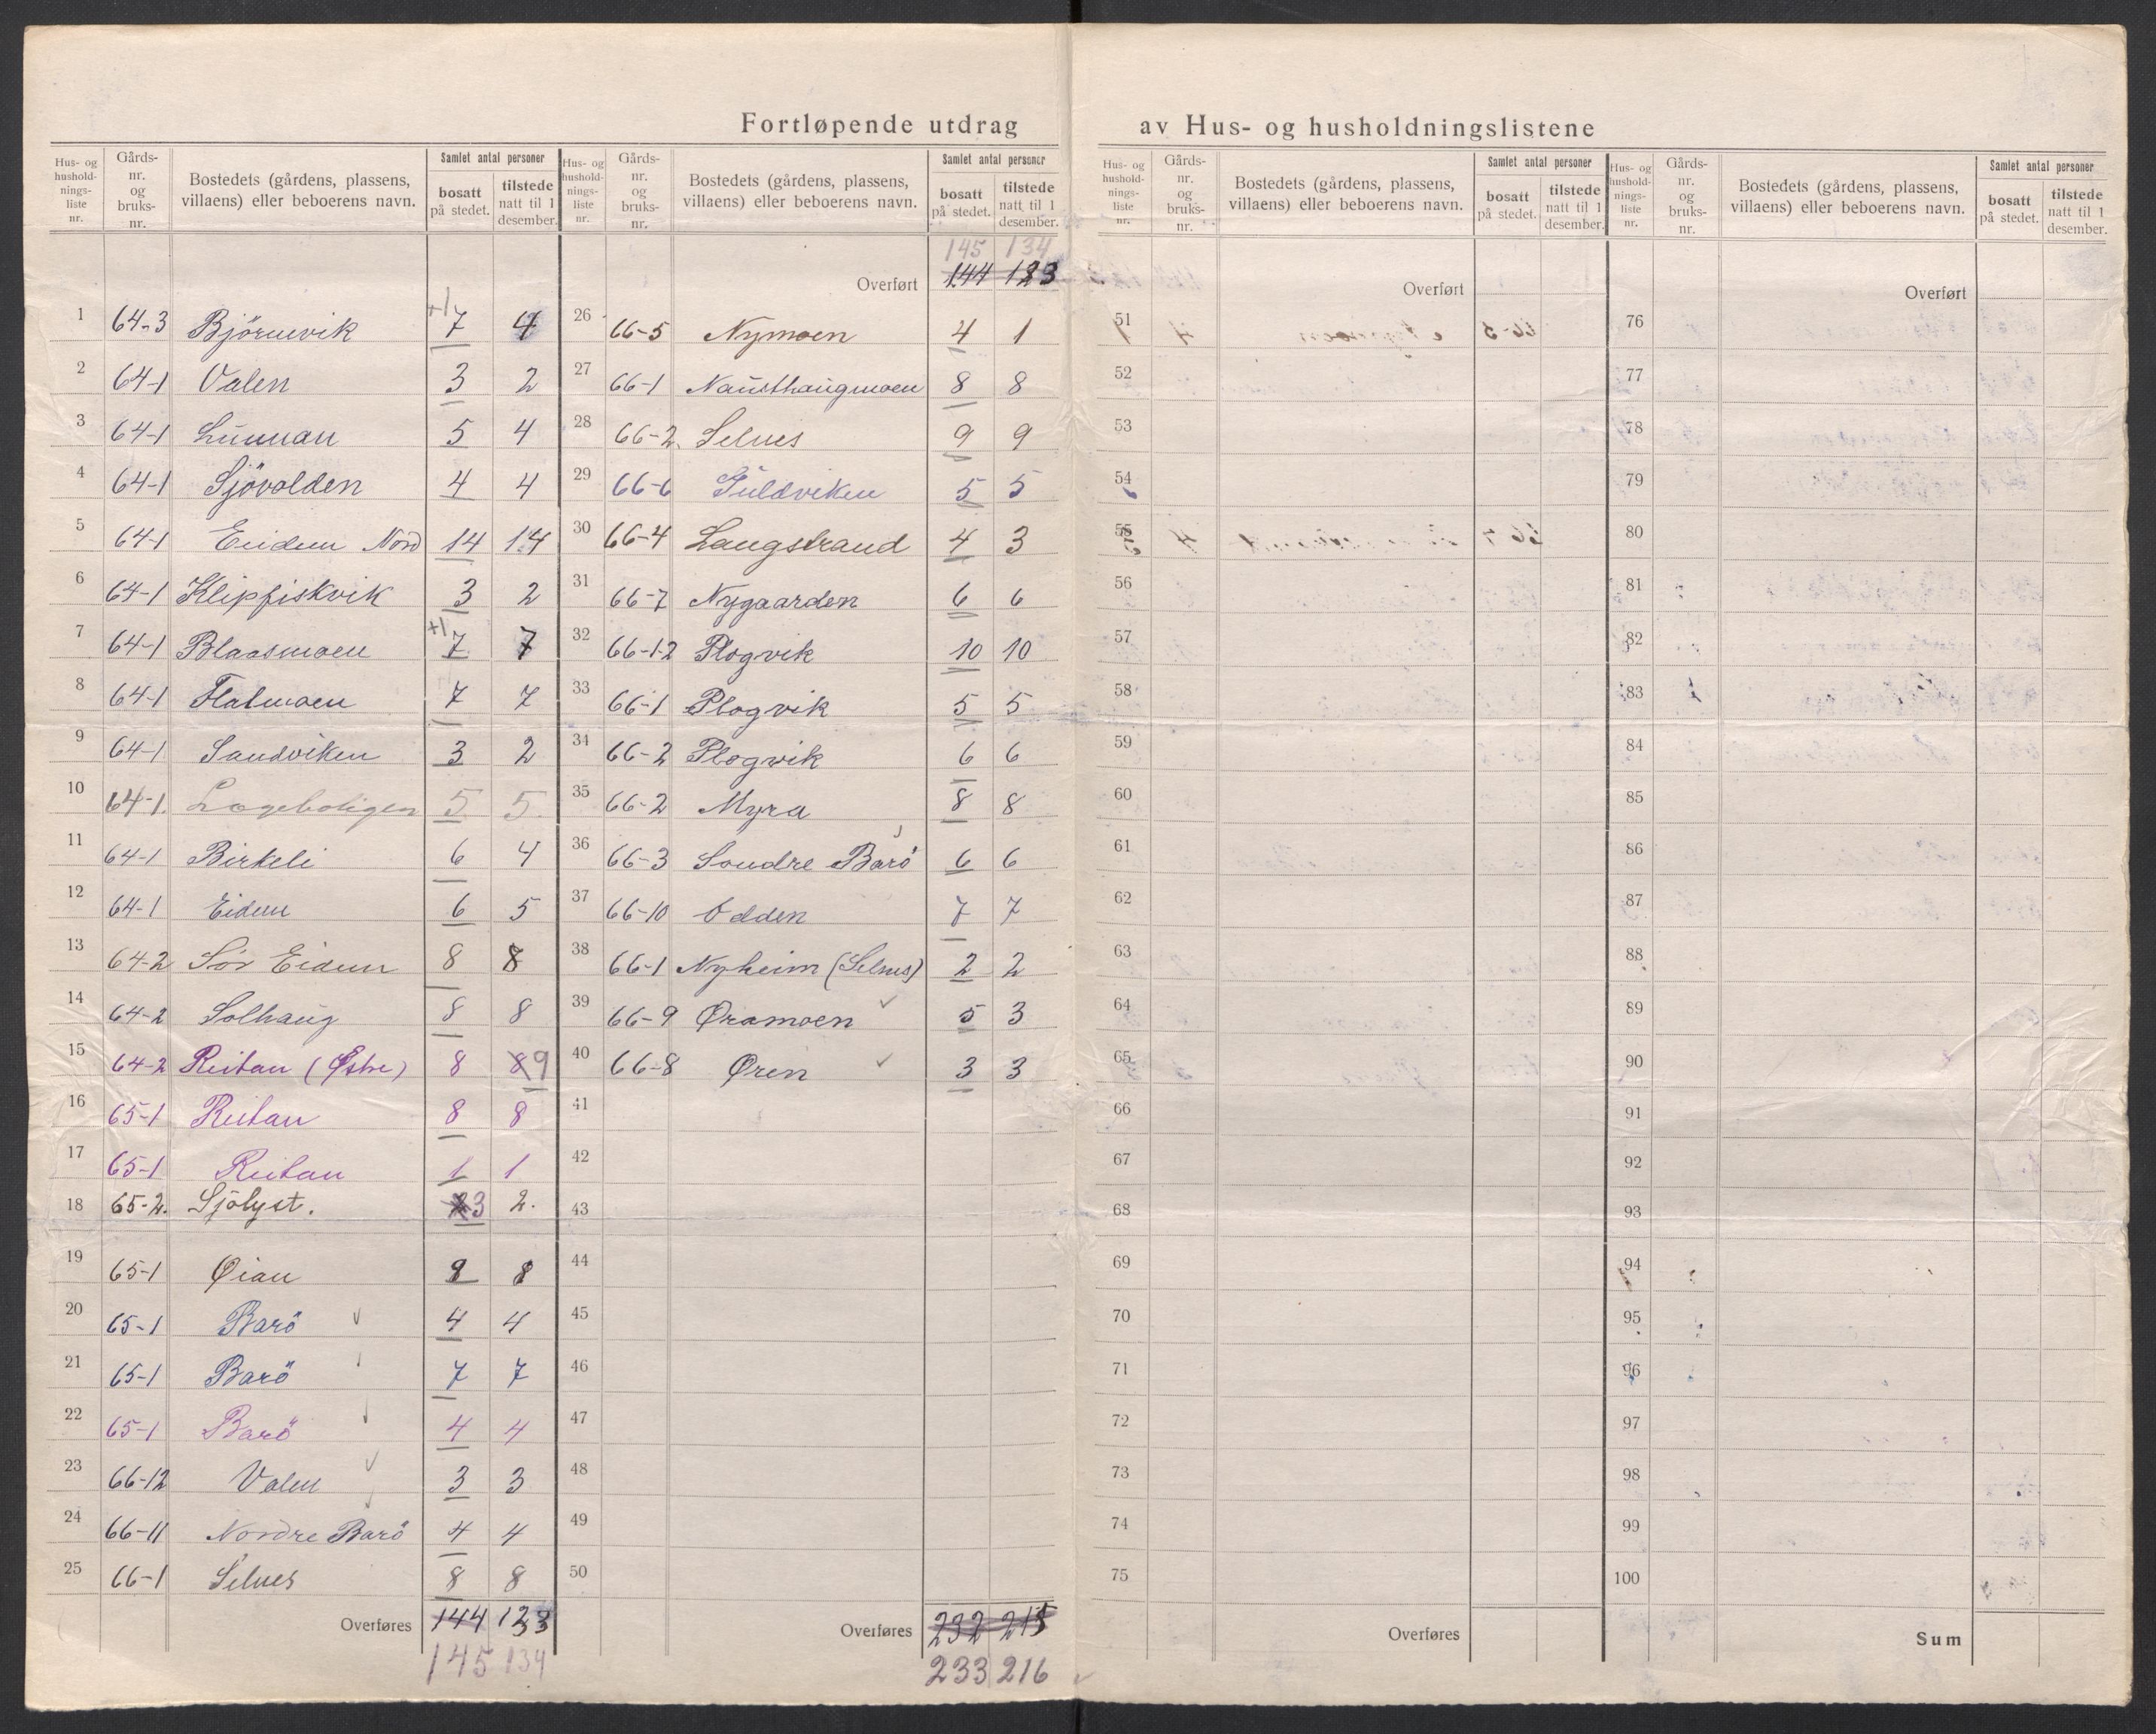 Fortløpende utdrag av Hus- og husholdningslistene
Hus- og hushold-nings-liste nr. | Gårds-nr. og bruks-nr. | Bostedets (gårdens, plassens, villaens) eller beboerens navn. | Samlet antal personer | bosatt på stedet. | tilstede natt til 1 desember.
1 64-3 Björnevik +1 7 4
2 64-1 Valen 3 2
3 64-1 Lunnan 5 4
4 64-1 Sjövolden 4 4
5 64-1 Eidum Nord 14 14
6 64-1 Klipfiskvik 3 2
7 64-1 Blaasmoen +1 7 7
8 64-1 Flatmoen 7 7
9 64-1 Sandviken 3 2
10 64-1. Lægeboligen 5 5.
11 64-1 Birkeli 6 4
12 64-1 Eidum 6 5
13 64-2 Sör Eidum 8 8
14 64-2 Solhaug 8 8
15 64-2 Reitan (Østre) 8 8 9
16 65-1 Reitan 8 8
17 65-1 Reitan 1 1
18 65-2. Sjölyst. 3 2.
19 65-1 Øian 8 8
20 65-1 Barö 4 4
21 65-1 Barö 7 7
22 65-1 Barö 4 4
23 66-12 Valen 3 3
24 66-11 Nordre Barö 4 4
25 66-1 Selnes 8 8
Overføres 144 133
145 134
Hus- og hushold-nings-liste nr. | Gårds-nr. og bruks-nr. | Bostedets (gårdens, plassens, villaens) eller beboerens navn. | Samlet antal personer | bosatt på stedet. | tilstede natt til 1 desember.
145 134
Overført 144 133
26 66-5 Nymoen 4 1
27 66-1 Nausthaugmoen 8 8
28 66-2. Selnes 9 9
29 66-6 Guldviken 5 5
30 66-4 Langstrand 4 3
31 66-7 Nygaarden 6 6
32 66-1-2 Plogvik 10 10
33 66-1 Plogvik 5 5
34 66-2 Plogvik 6 6
35 66-2 Myra 8 8
36 66-3 Sondre Barö 6 6
37 66-10 Odden 7 7
38 66-1 Nyheim (Selnes) 2 2
39 66-9 Øramoen 5 3
40 66-8 Øren 3 3
41
42
43
44
45
46
47
48
49
50
Overføres 232 215
233 216
Hus- og hushold-nings-liste nr. | Gårds-nr. og bruks-nr. | Bostedets (gårdens, plassens, villaens) eller beboerens navn. | Samlet antal personer | bosatt på stedet. | tilstede natt til 1 desember.
Overført
51
52
53
54
55
56
57
58
59
60
61
62
63
64
65
66
67
68
69
70
71
72
73
74
75
Overføres
Hus- og hushold-nings-liste nr. | Gårds-nr. og bruks-nr. | Bostedets (gårdens, plassens, villaens) eller beboerens navn. | Samlet antal personer | bosatt på stedet. | tilstede natt til 1 desember.
Overført
76
77
78
79
80
81
82
83
84
85
86
87
88
89
90
91
92
93
94
95
96
97
98
99
100
Sum